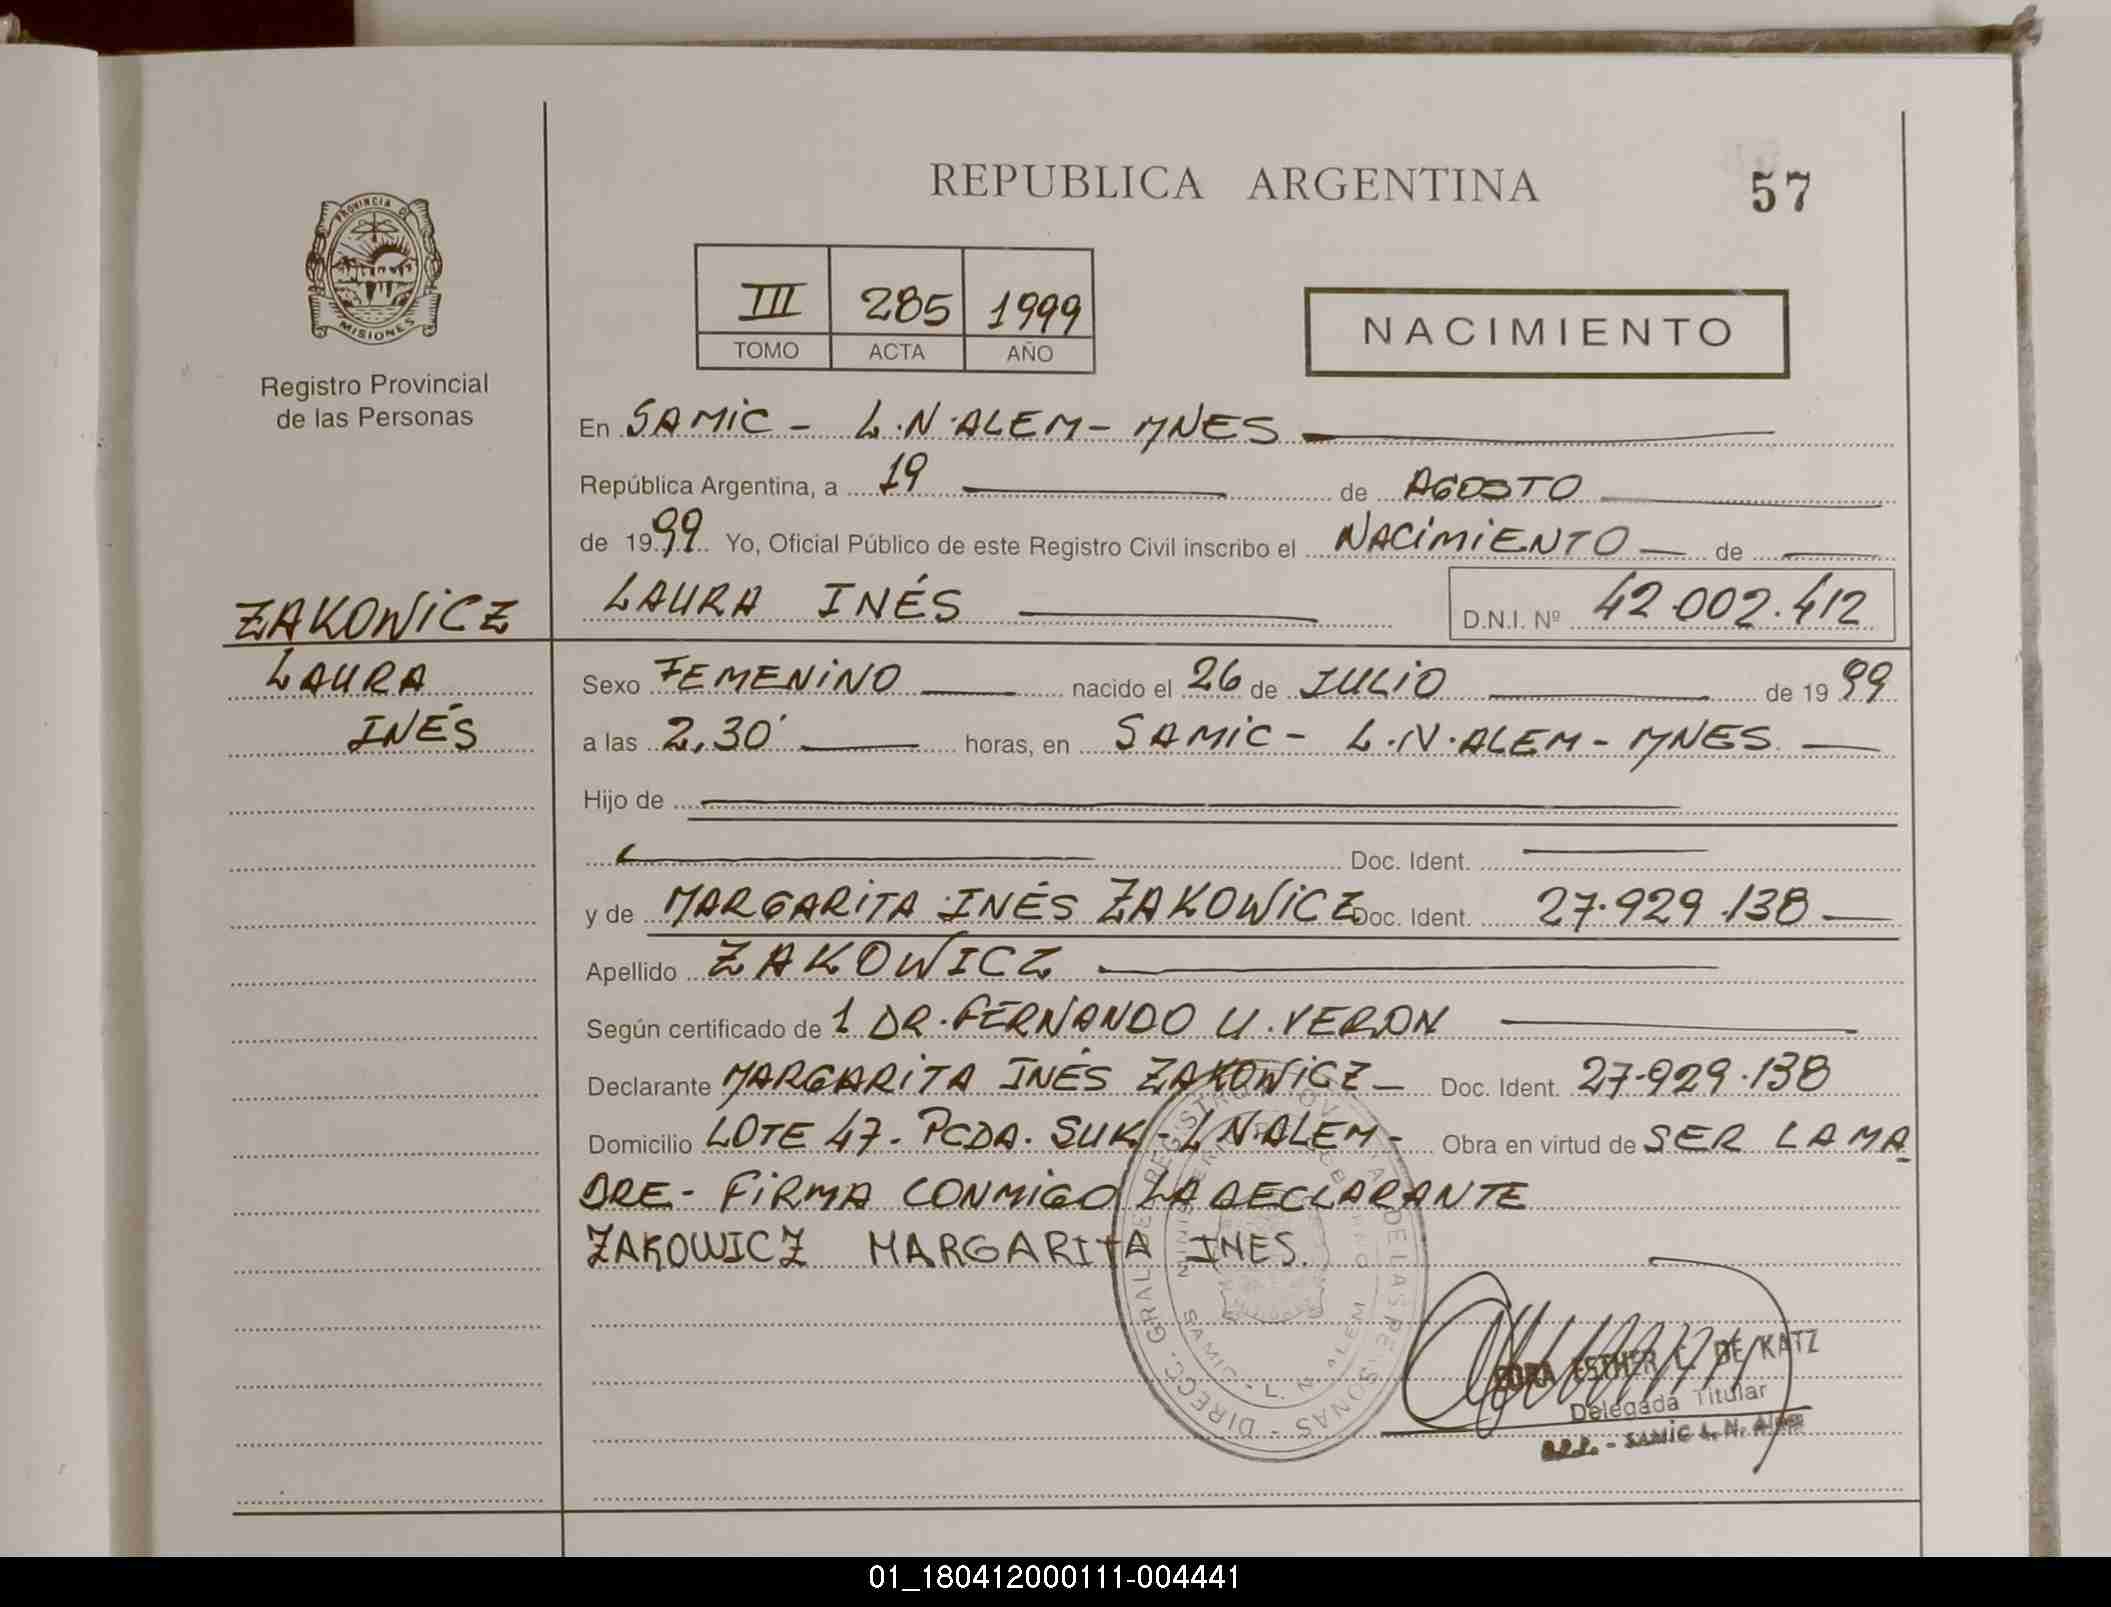 REPUBLICA ARGENTINA
57
PROVINCIA DE
MISIONES
Registro Provincial
de las Personas
III 285 1999
TOMO ACTA AÑO
NACIMIENTO
En SAMIC - L.N.ALEM - MNES
República Argentina, a 19 de AGOSTO
de 1999 Yo, Oficial Público de este Registro Civil inscribo el NACIMIENTO de
LAURA INÉS D.N.I. Nº 42.002.412
ZAKOWICZ
LAURA
INÉS
Sexo FEMENINO nacido el 26 de JULIO de 1999
a las 2,30' horas, en SAMIC - L.N.ALEM - MNES
Hijo de
Doc. Ident.
y de MARGARITA INÉS ZAKOWICZ Doc. Ident. 27.929.138
Apellido ZAKOWICZ
Según certificado de 1 DR. FERNANDO U. VERON
Declarante MARGARITA INÉS ZAKOWICZ Doc. Ident. 27.929.138
Domicilio LOTE 47. PCDA. SUK - L N.ALEM - Obra en virtud de SER LA MA
DRE - FIRMA CONMIGO LA DECLARANTE
ZAKOWICZ MARGARITA INES.
DIRECC. GRAL DEL REGISTRO PROVINCIAL DE LAS PERSONAS
SAMIC - L. N. ALEM
ESTHER C. DE KATZ
Delegada Titular
SAMIC L. N. Alem
01_180412000111-004441